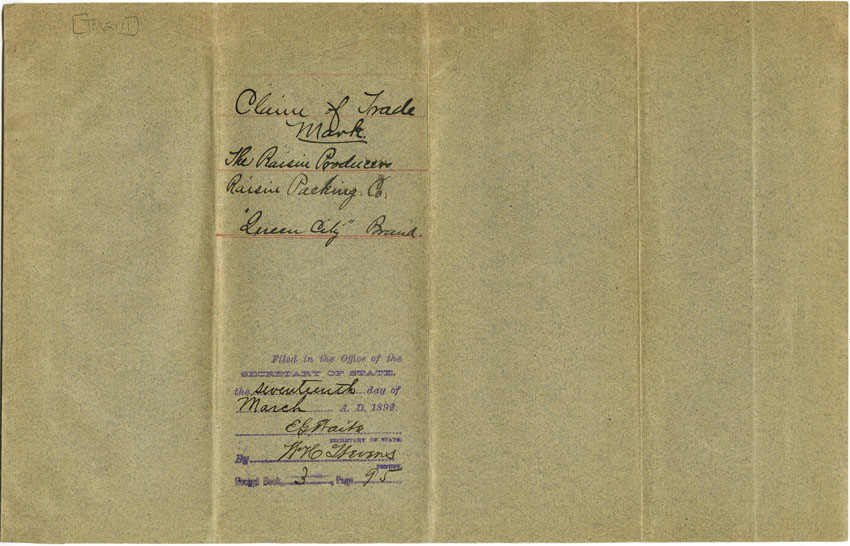 Claim of Trade
Mark.
The Raisin Producers
Raisin Packing Co.
"Queen City" Brand.
Filed in the Office of the
SECRETARY OF STATE,
the seventeenth day of
March A. D. 1892.
E G Waite
SECRETARY OF STATE.
By W H
DEPUTY.
Book, 3, Page 95